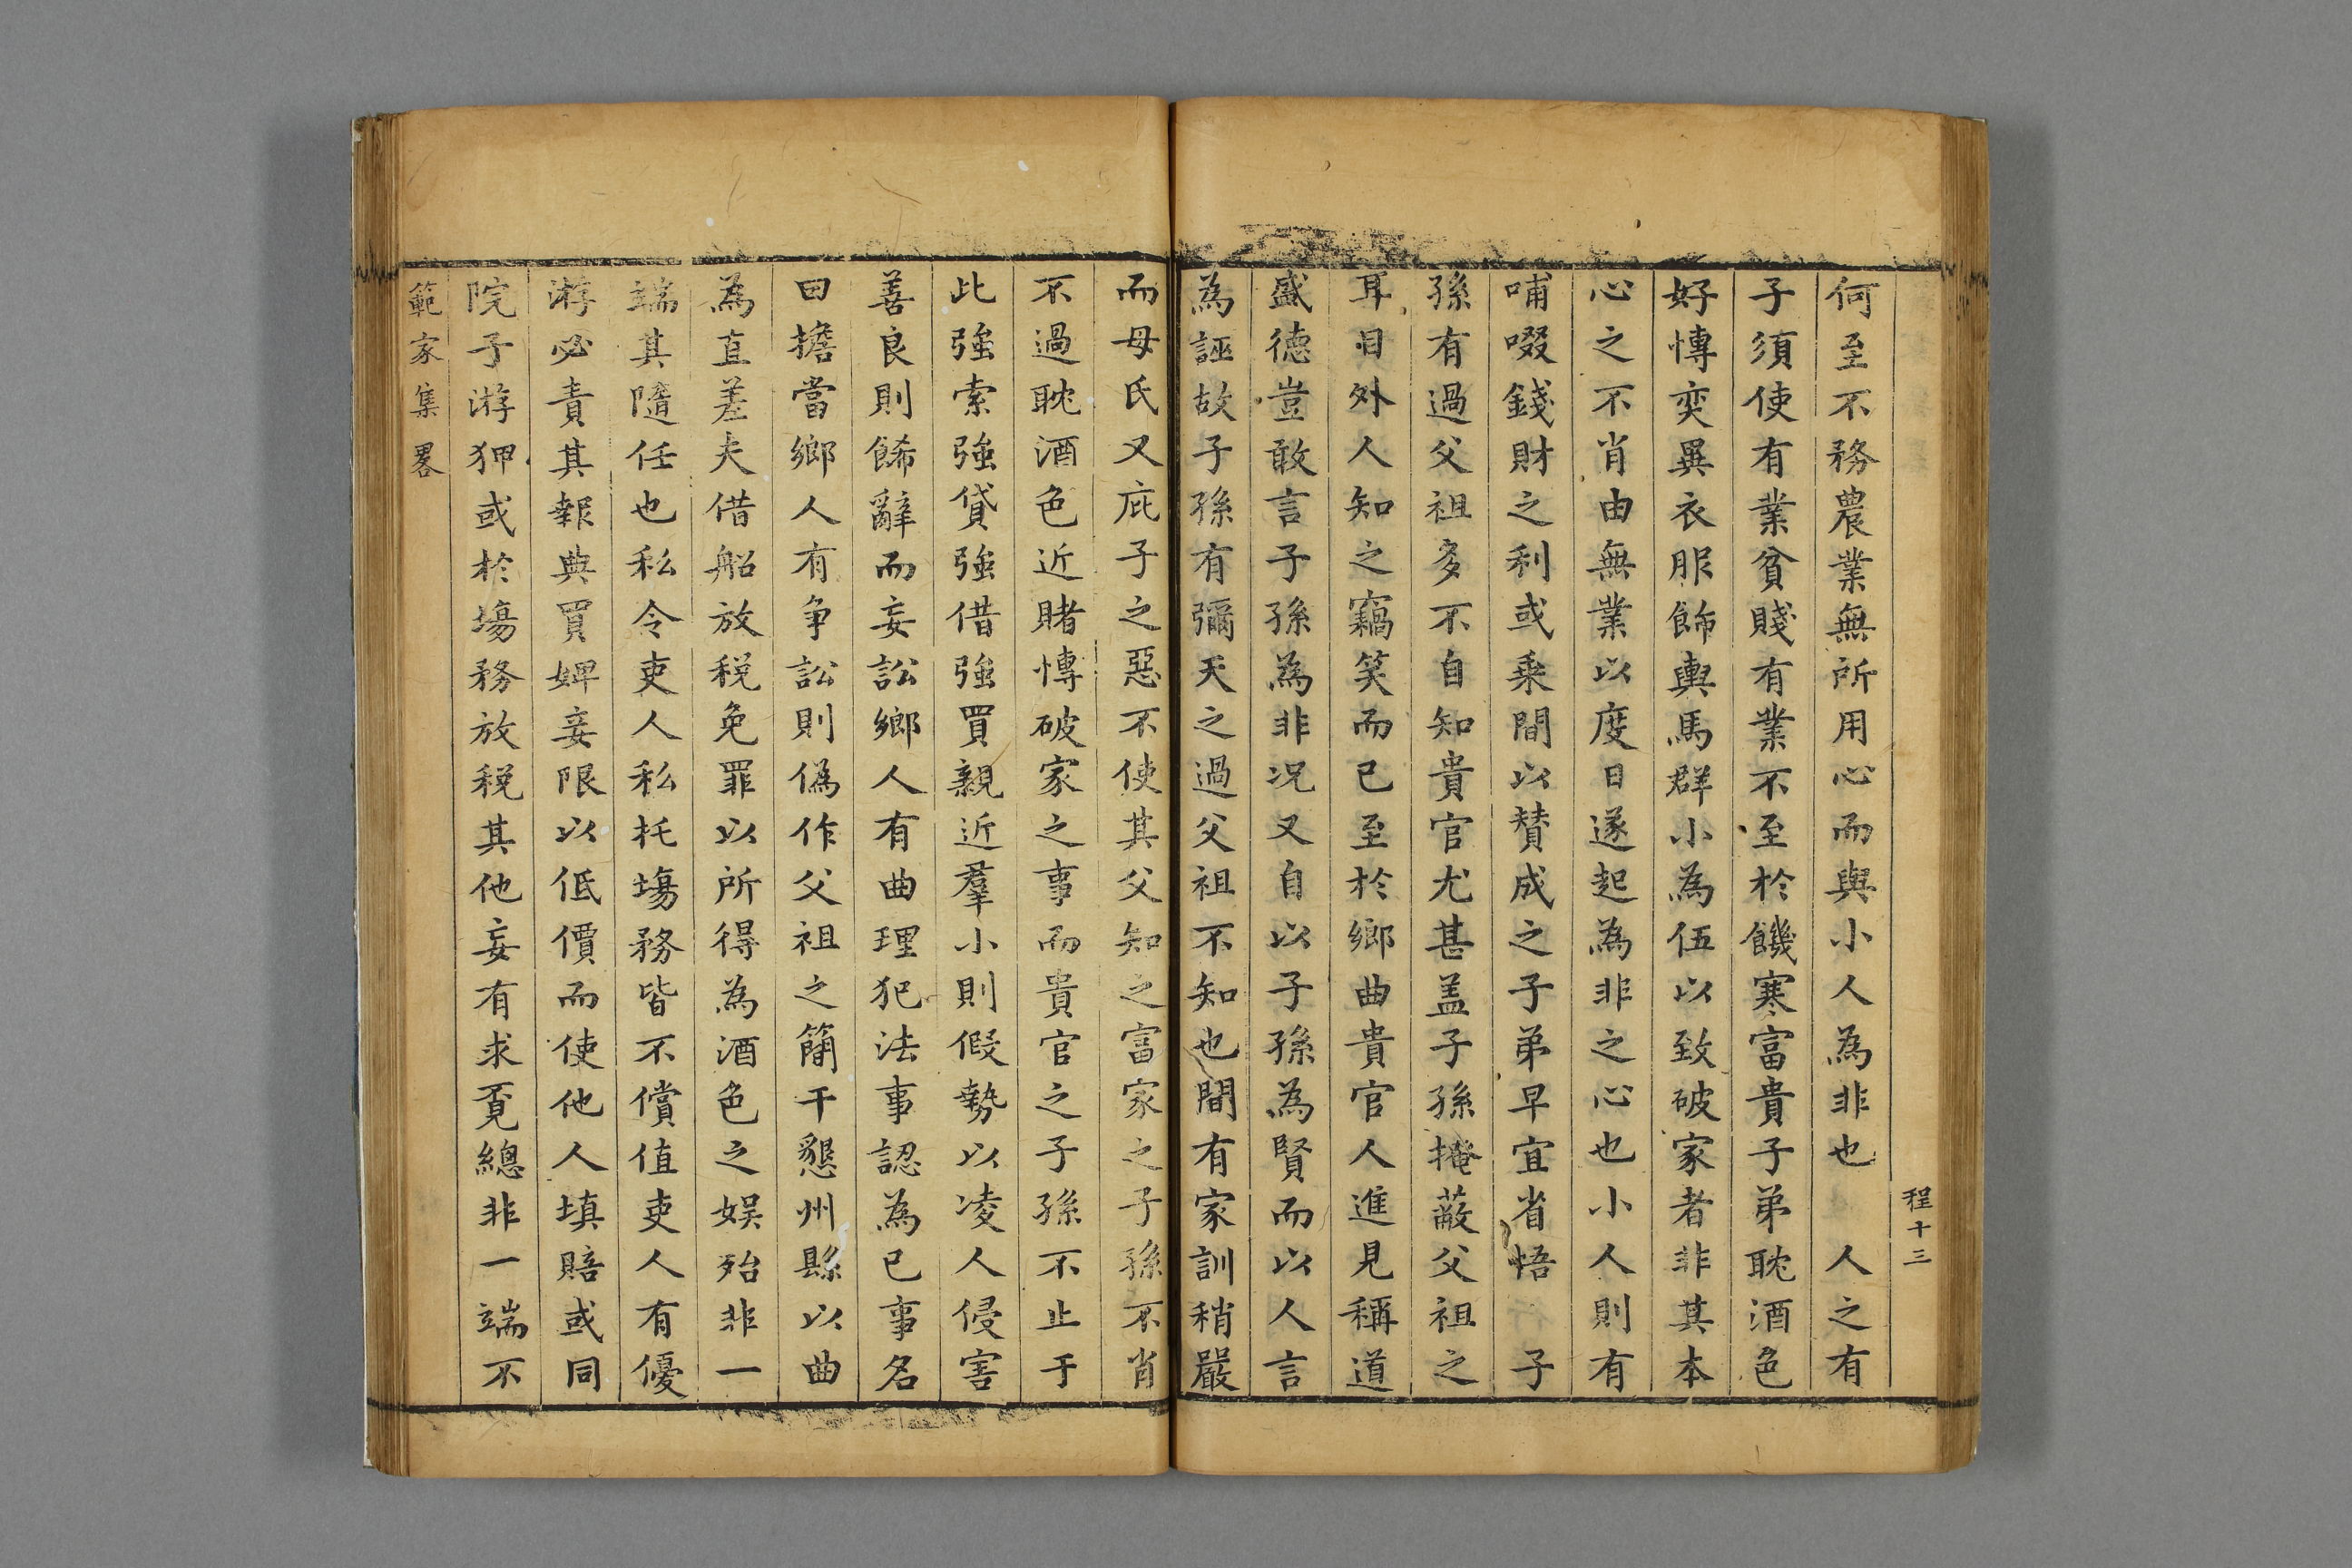 程十三
何至不務農業無所用心而與小人為非也　人之有
子須使有業貧賤有業不至於饑寒富貴子弟耽酒色
好慱奕異衣服飾輿馬群小為伍以致破家者非其本
心之不肖由無業以度日遂起為非之心也小人則有
哺啜錢財之利或乘間以賛成之子弟早宜省悟　子
孫有過父祖多不自知貴官尤甚盖子孫掩蔽父祖之
耳目外人知之竊笑而已至於鄉曲貴官人進見稱道
盛德豈敢言子孫為非况又自以子孫為賢而以人言
為誣故子孫有彌天之過父祖不知也間有家訓稍嚴
而母氏又庇子之惡不使其父知之富家之子孫不肖
不過耽酒色近賭慱破家之事而貴官之子孫不止于
此強索強貸強借強買親近羣小則假勢以凌人侵害
善良則餙辭而妄訟鄉人有曲理犯法事認為已事名
曰擔當鄉人有爭訟則偽作父祖之簡干懇州縣以曲
為直差夫借船放税免罪以所得為酒色之娱殆非一
端其隨任也私令吏人私托塲務皆不償值吏人有優
游必責其報典買婢妾限以低價而使他人填賠或同
院子游狎或於塲務放税其他妄有求覔總非一端不
範家集畧